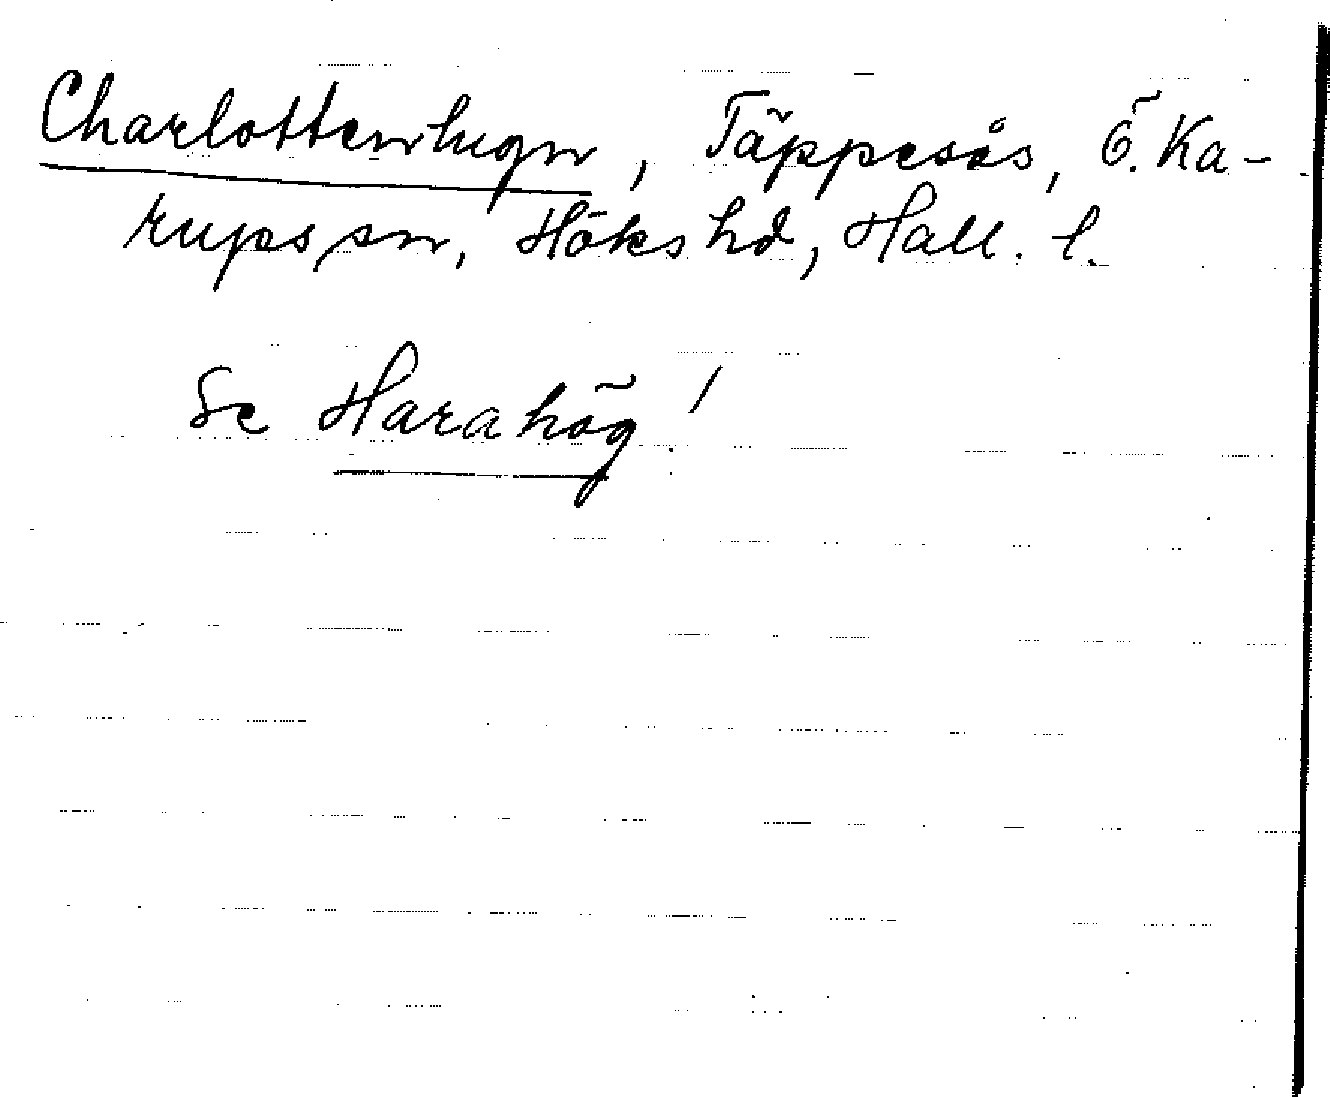 Charlottenlugn, Täppesås, Ö. Ka-
rups sn, Höks hd, Hall. l.
Se Harahög!